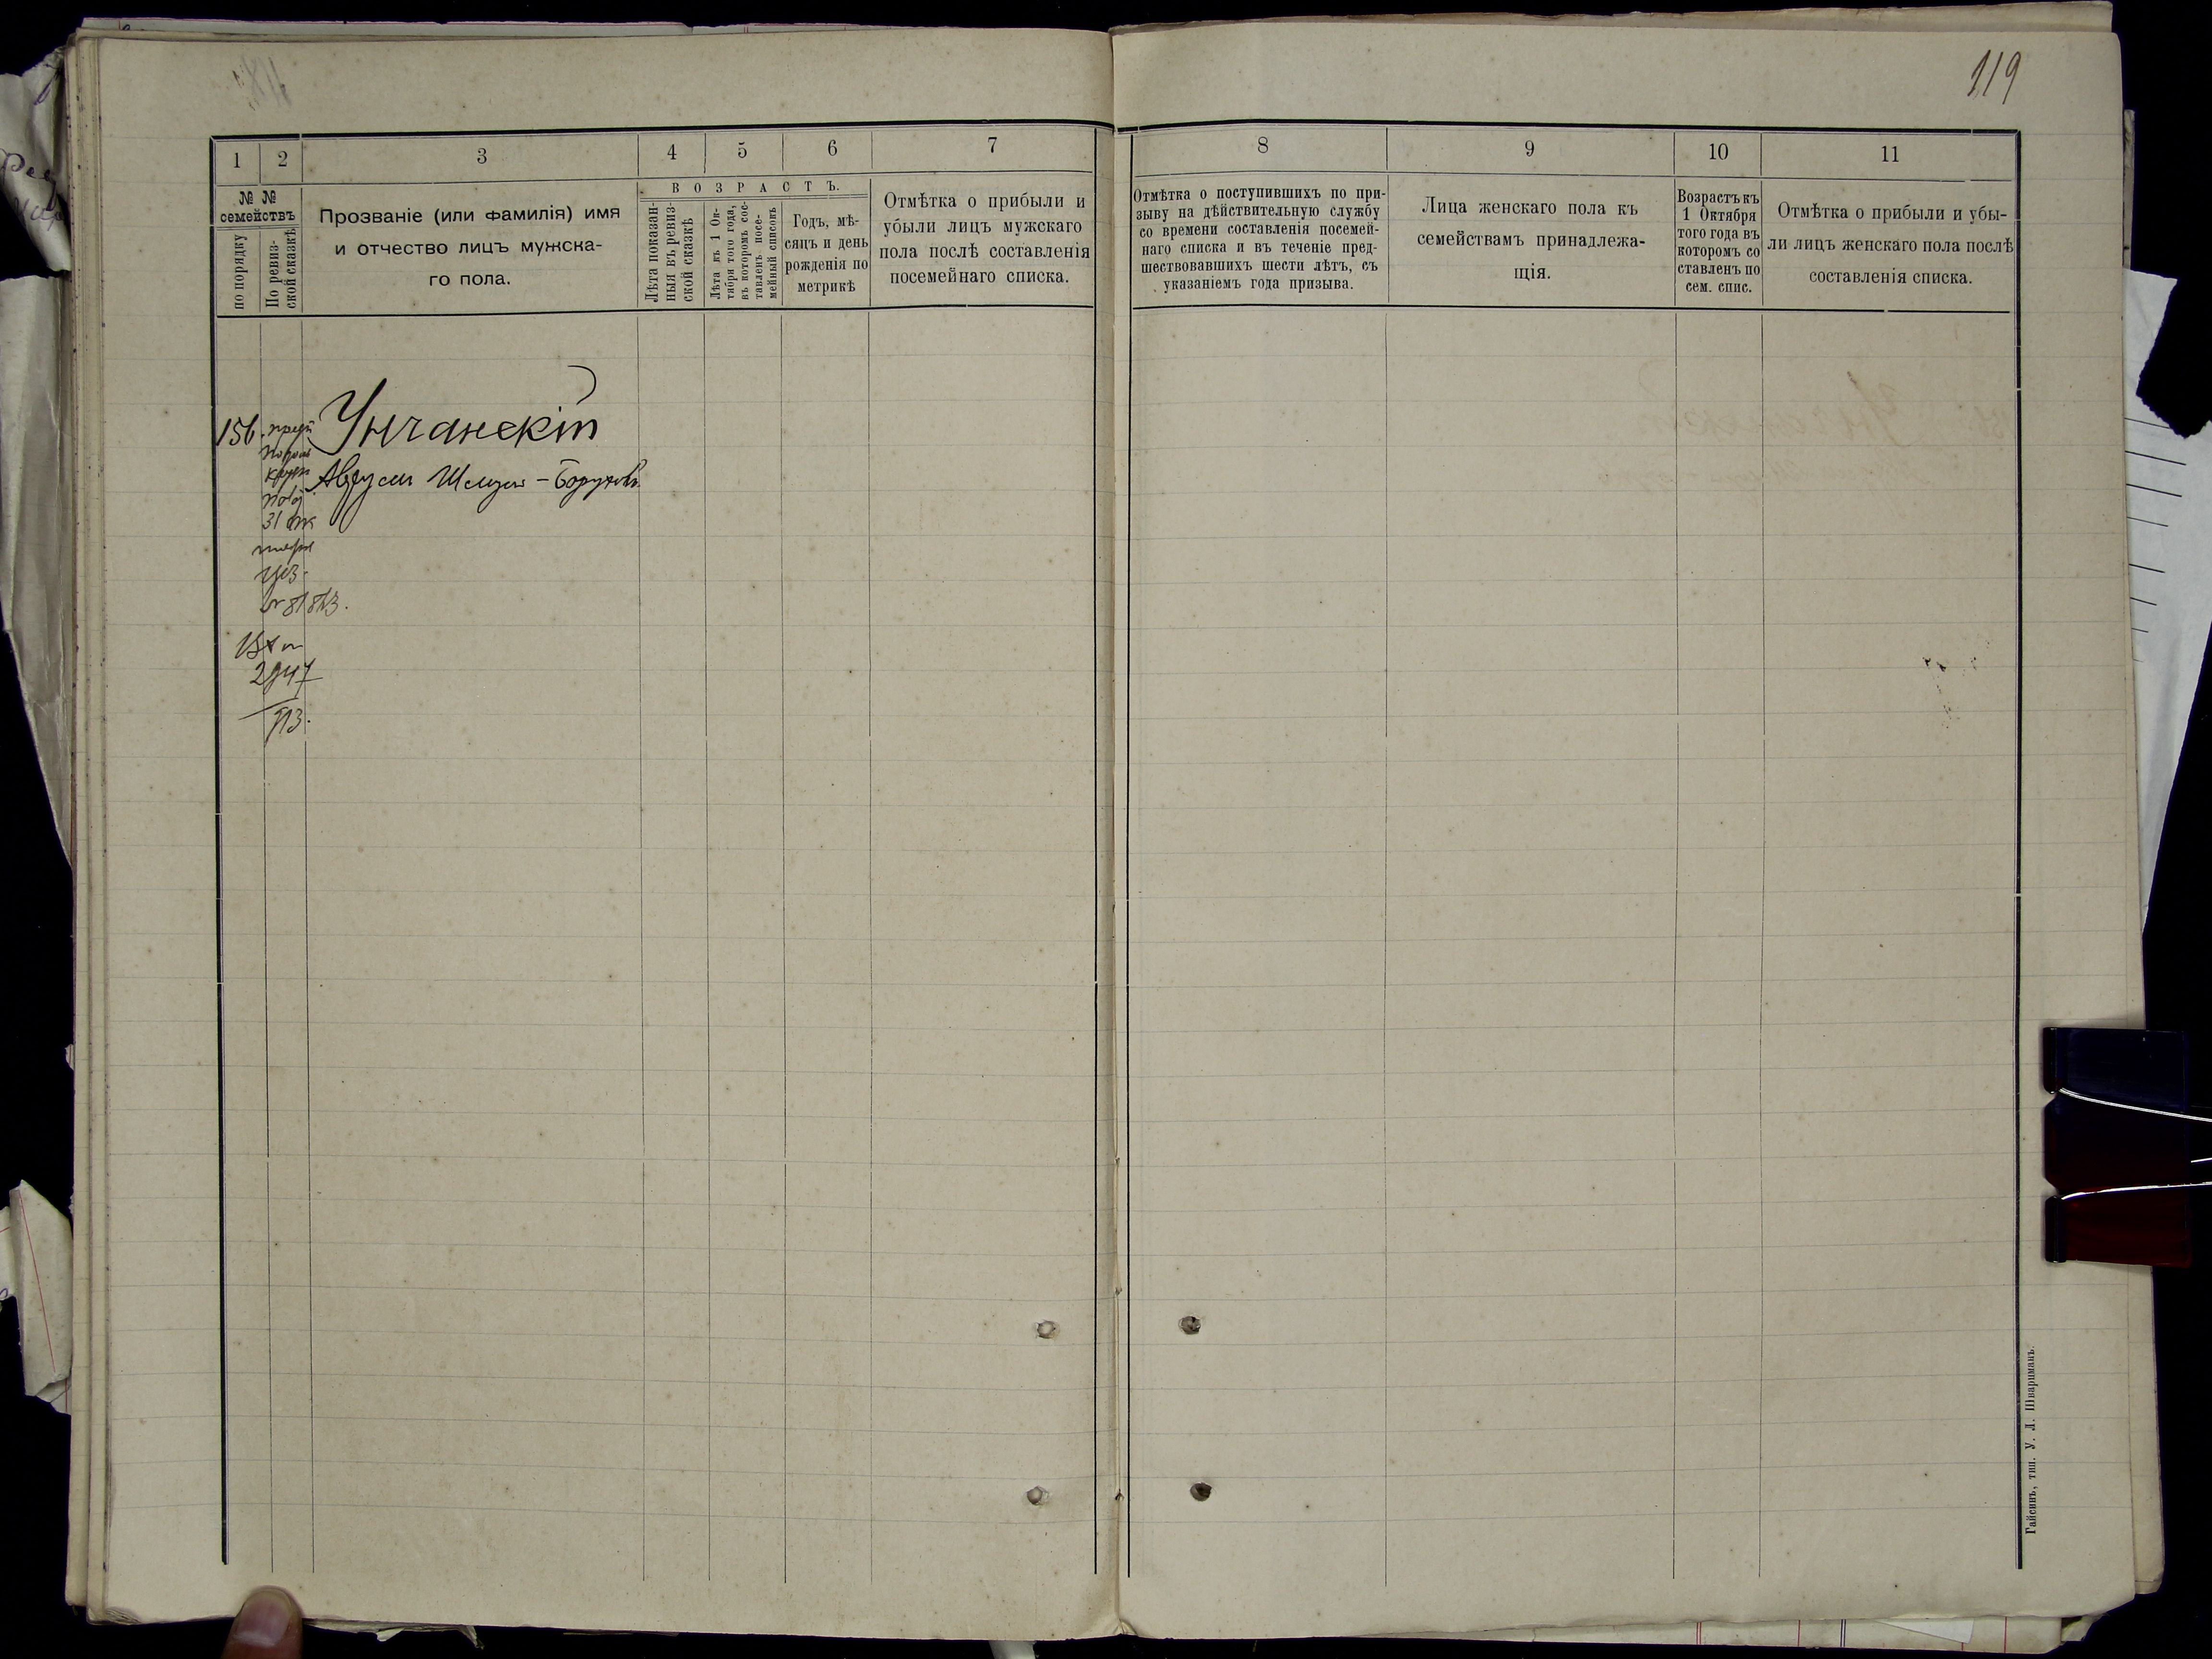 119
1 2 3 4 5 6 7
№ № семействъ
по порядку
По ревиз-
ской сказкѣ
Прозваніе (или фамилія) имя
и отчество лицъ мужска-
го пола.
ВОЗРАСТЪ.
Лѣта показан-
ныя въ ревиз-
ской сказкѣ
Лѣта къ 1 Ок-
тября того года,
въ которомъ сос-
тавленъ посе-
мейный списокъ
Годъ, мѣ-
сяцъ и день
рожденія по
метрикѣ
Отмѣтка о прибыли и
убыли лицъ мужскаго
пола послѣ составленія
посемейнаго списка.
8 9 10 11
Отмѣтка о поступившихъ по при-
зыву на дѣйствительную службу
со времени составленія посемей-
наго списка и въ теченіе пред-
шествовавшихъ шести лѣтъ, съ
указаніемъ года призыва.
Лица женскаго пола къ
семействамъ принадлежа-
щія.
Возрастъ къ
1 Октября
того года въ
которомъ со
ставленъ по
сем. спис.
Отмѣтка о прибыли и убы-
ли лицъ женскаго пола послѣ
составленія списка.
156. Унчанскій
Шлума-Борухов.
31
2947
913.
Гайсинъ, тип. У. Л. Шварцманъ.